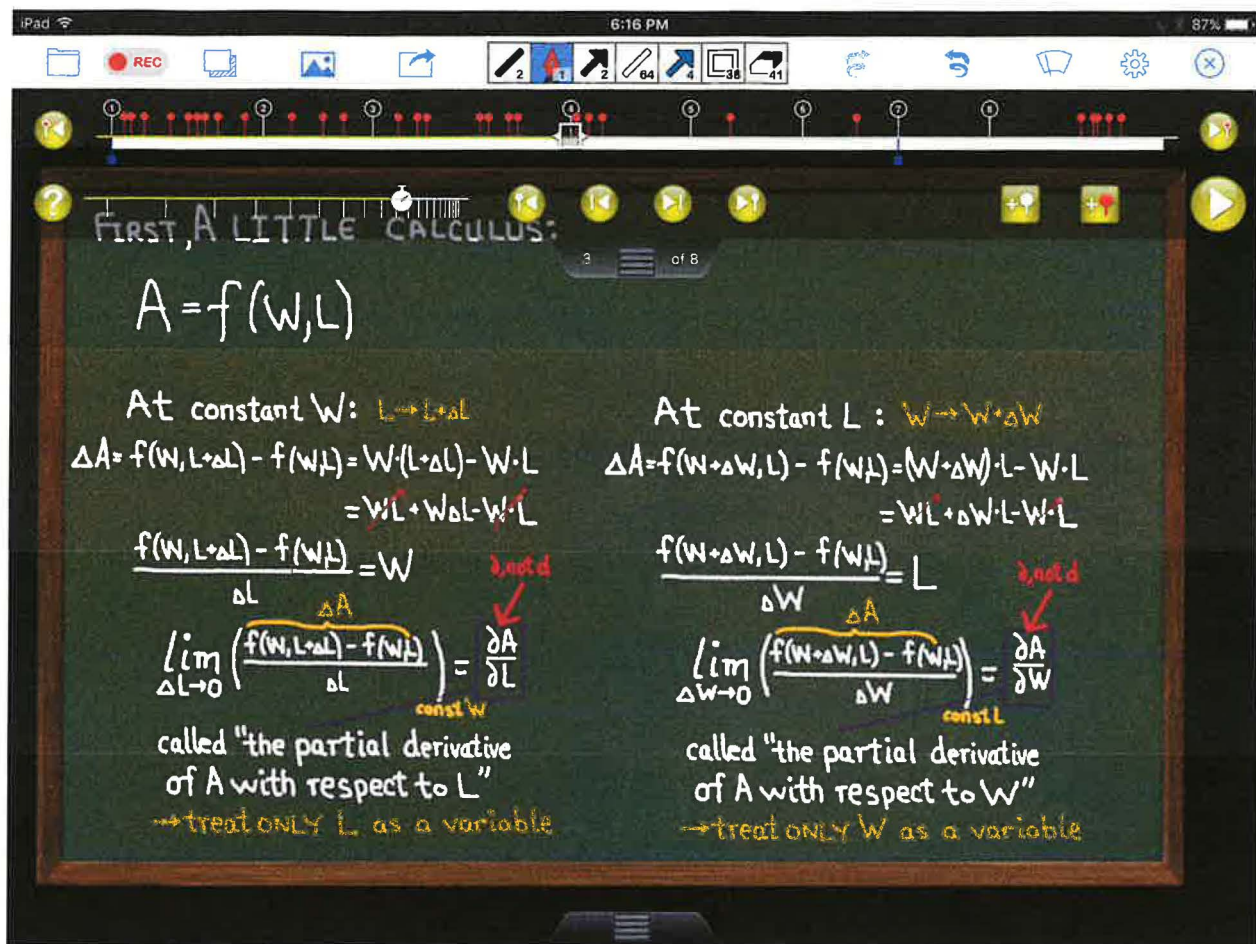 iPad 6:16 PM 87%
REC 2 1 2 64 4 38 41
1 2 3 4 5 6 7 8
?
FIRST, A LITTLE CALCULUS:
3 of 8
A = f(W,L)
At constant W: L→L+ΔL
ΔA = f(W,L+ΔL) - f(W,L) = W·(L+ΔL) - W·L
= WL + WΔL - W·L
f(W,L+ΔL) - f(W,L) / ΔL = W
∂, not d
ΔA
lim ΔL→0 (f(W,L+ΔL) - f(W,L) / ΔL) const W = ∂A/∂L
called "the partial derivative
of A with respect to L"
→treat ONLY L as a variable
At constant L: W→W+ΔW
ΔA = f(W+ΔW,L) - f(W,L) = (W+ΔW)·L - W·L
= WL + ΔW·L - W·L
f(W+ΔW,L) - f(W,L) / ΔW = L
∂, not d
ΔA
lim ΔW→0 (f(W+ΔW,L) - f(W,L) / ΔW) const L = ∂A/∂W
called "the partial derivative
of A with respect to W"
→treat ONLY W as a variable